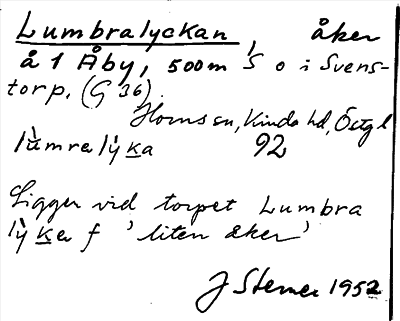 Lumbralyckan, åker
å 1 Åby, 500m S o i Svens-
torp. (G 36)
Horns sn, Kinda hd, Östgl
lùmrelỳka 92
Ligger vid torpet Lumbra
lỳker f 'liten åker'
J Sterner 1952